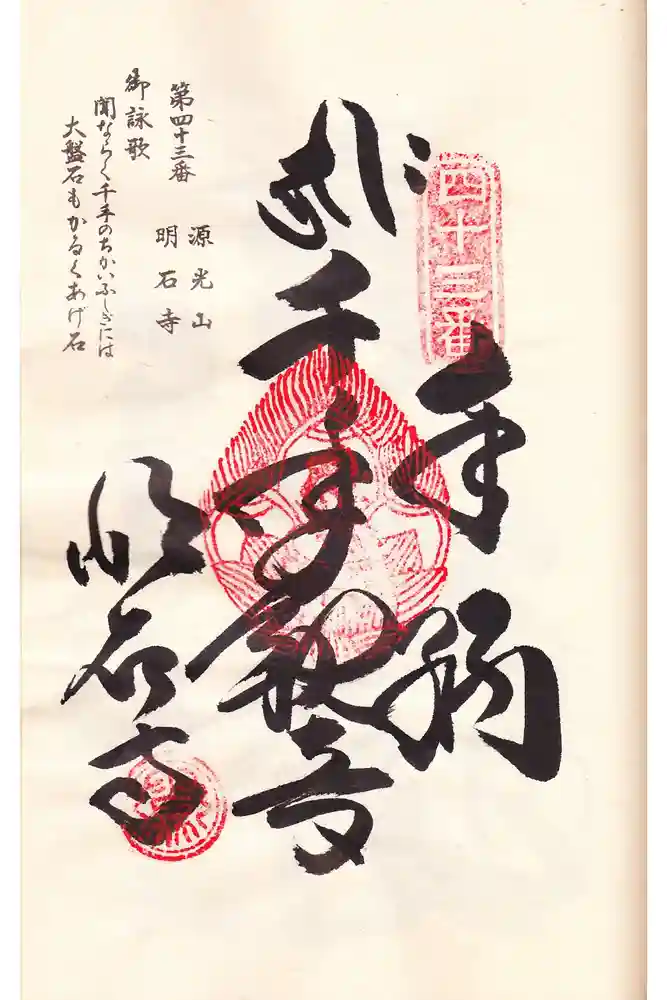 四十三番
奉納
千手観音
明石寺
第四十三番
源光山
明石寺
御詠歌
聞ならく千手のちかいふしぎには
大盤石もかるくあげ石